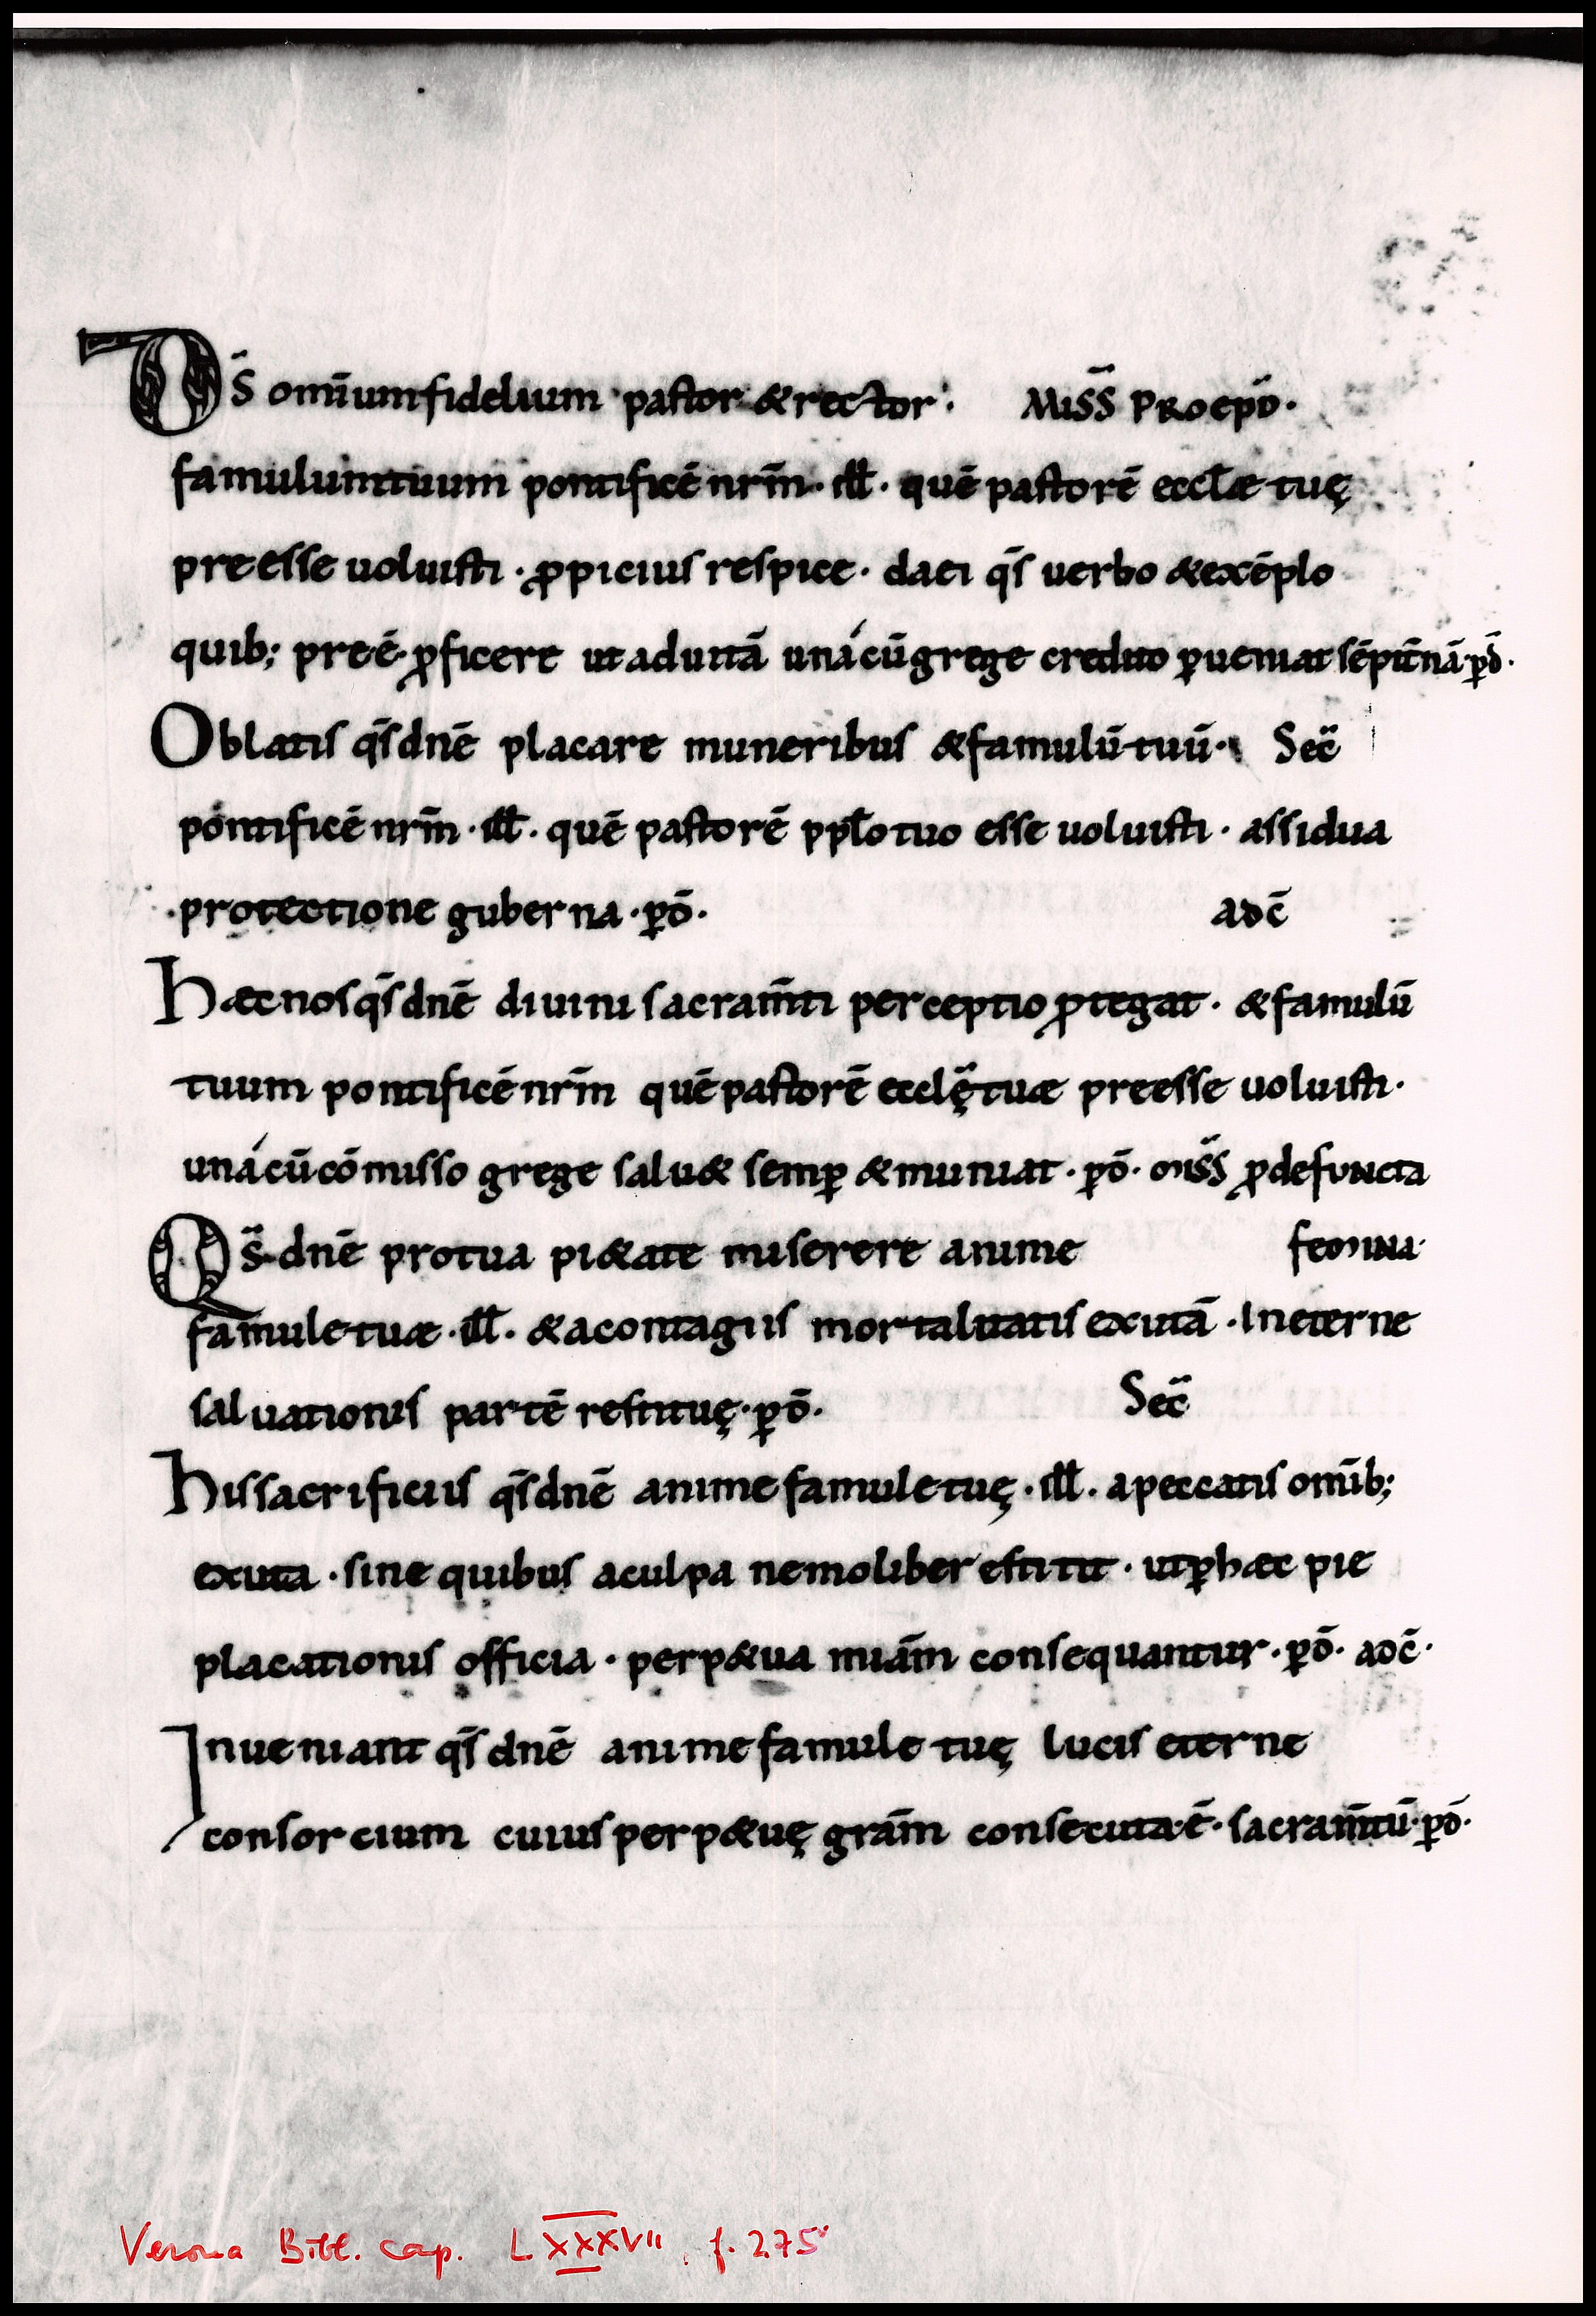 D̄s omīum fidelium pastor & rector· Miss̄ pro ep̄o·
famulum tuum pontificē nrm̄· ill̄· quē pastorē eccl̄æ tuę
preesse uoluisti· ꝓpicius respice· da ei q̄s uerbo & exēplo
quib; preē· ꝓficere ut ad uitā unácū grege credito ꝑueniat sēpit̄nā· ꝑō·
Oblatis q̄s dnē placare muneribus & famulū tuū· Sec̄
pontificē nrm̄· ill̄· quē pastorē ppl̄o tuo esse uoluisti· assidua
protectione guberna· ꝑō· adc̄
Hæc nos q̄s dnē diuini sacram̄ti perceptio ꝓtegat· & famulū
tuum pontificē nrm̄ quē pastorē eccl̄ę tuæ preesse uoluisti·
unácū cōmisso grege salu& semꝑ & muniat· ꝑō· miss̄ ꝓ defuncta
Q̄s dnē pro tua pi&ate miserere anime femina·
famule tuæ· ill̄· & a contagiis mortalitatis exutā· In eterne
saluationis partē restituę· ꝑō· Sec̄
His sacrificiis q̄s dnē anime famule tuę· ill̄· a peccatis omīb;
exuta· sine quibus a culpa nemo liber estitit· ut ꝑ hæc pie
placationis officia· perp&ua miām consequantur· ꝑō· adc̄·
Inueniant q̄s dnē anime famule tuę lucis eterne
consorcium cuius perp&uę grām consecuta ē· sacram̄tū· ꝑō·
Verona Bibl. cap. LXXXVII, f. 275ʳ